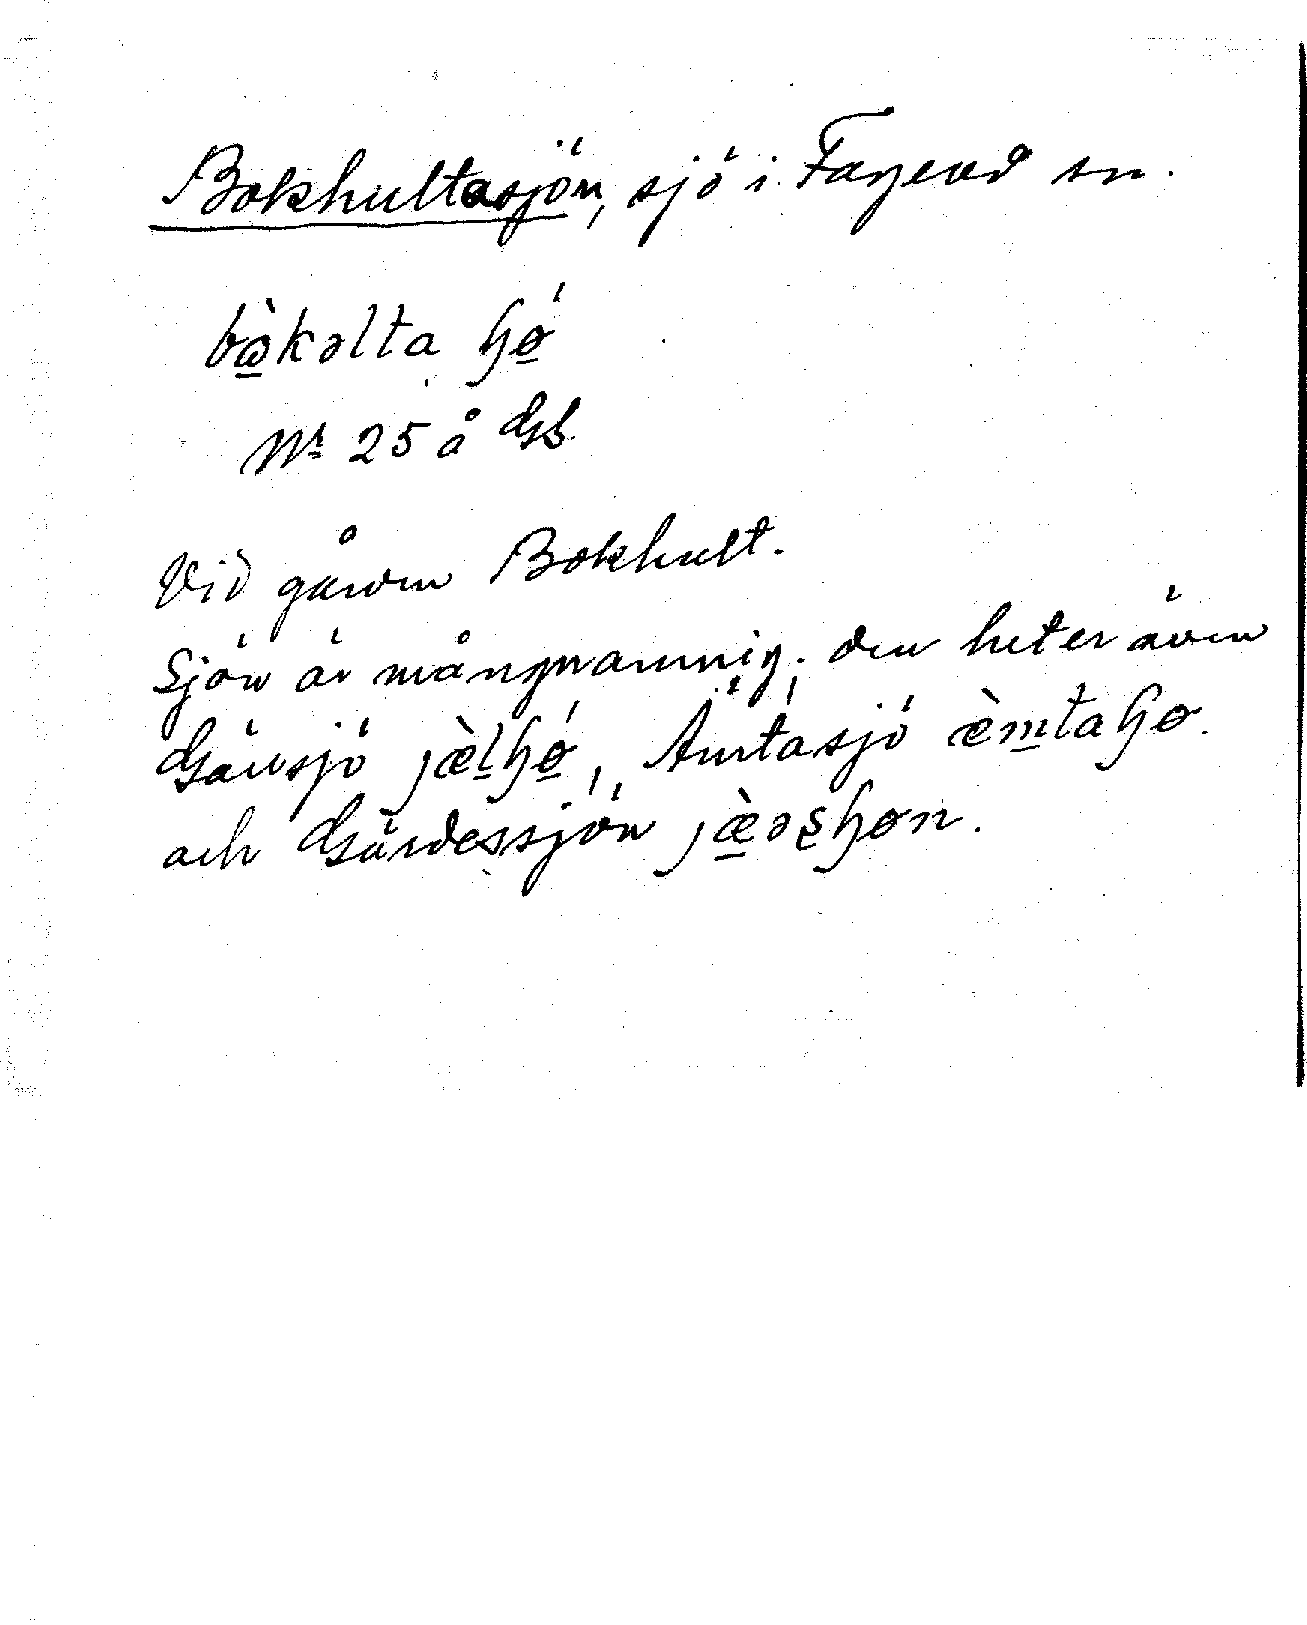 Bokhultasjön, sjö i Fagered sn.
bòkəlta ɧø
Nr 25 å GS
Vid gården Bokhult.
Sjön är mångnamnig; den heter även
Gäusjö jæ̀lɧø, Ämtasjö æ̀mtaɧø.
och Gärdessjön jæ̀əsɧøn.